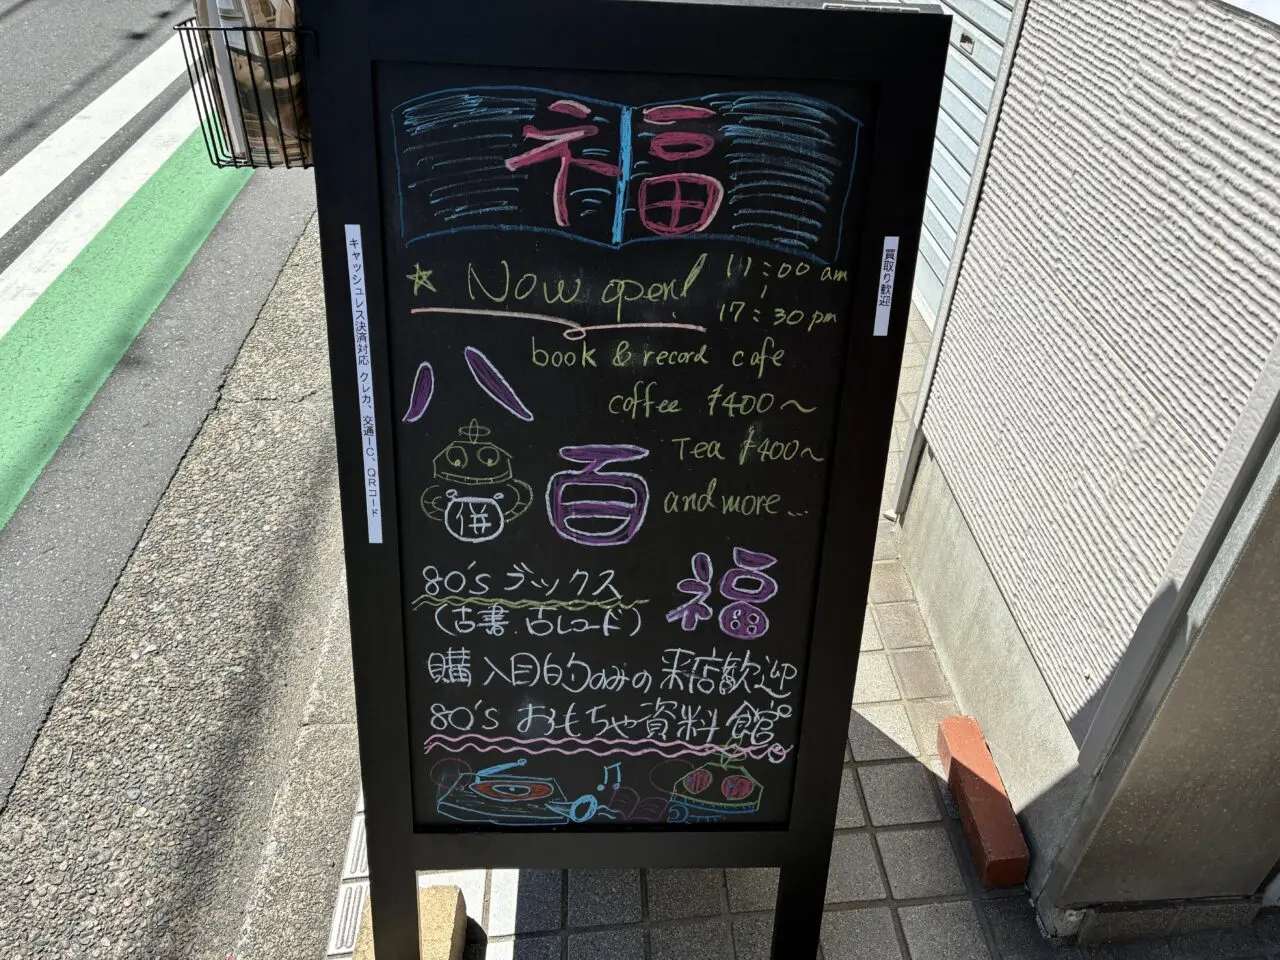 福
☆ Now open! 11:00 am
~
17:30 pm
book & record cafe
coffee ¥400～
Tea ¥400～
and more...
八百福
併
80'sブックス
(古書.古レコード)
購入目的のみの来店歓迎
80's おもちゃ資料館
キャッシュレス決済対応 クレカ、交通IC、QRコード
買取り歓迎